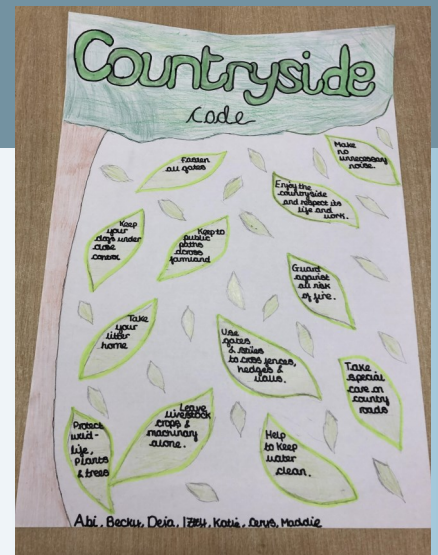 Countryside
Code
Fasten
all gates
Make
no
unnecessary
noise.
Enjoy the
countryside
and respect its
life and
work.
Keep
your
dogs under
close
control
Keep to
public
paths
across
farmland
Guard
against
all risk
of fire.
Take
your
litter
home
Use
gates
& stiles
to cross fences,
hedges &
walls.
Take
special
care on
country
roads
Protect
wild-
life,
plants
& trees
Leave
livestock
crops &
machinary
alone.
Help
to keep
water
clean.
Abi, Becky, Deia, Izzy, Katie, Carys, Maddie